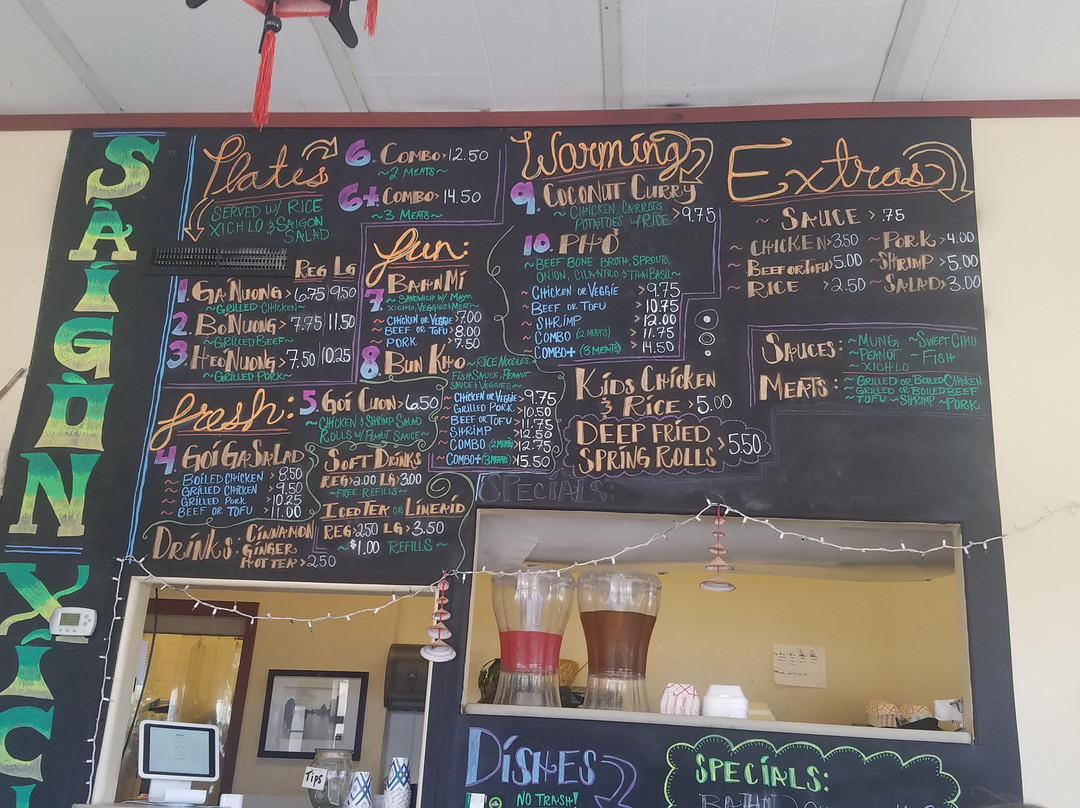 SAIGON
XICL
Plates
SERVED W/ RICE
XICH LO & SAIGON
SALAD
REG LG
1. GA NUONG > 6.75 | 9.50
~GRILLED CHICKEN~
2. BO NUONG > 7.75 | 11.50
~GRILLED BEEF~
3. HEO NUONG > 7.50 | 10.25
~GRILLED PORK~
6. COMBO > 12.50
~2 MEATS~
6+ COMBO > 14.50
~3 MEATS~
fresh:
4. GOI GA SALAD
~ BOILED CHICKEN > 8.50
~ GRILLED CHICKEN > 9.50
~ GRILLED PORK > 10.25
~ BEEF OR TOFU > 11.00
5. GOI CUON > 6.50
~ CHICKEN & SHRIMP SALAD
ROLLS W/ PEANUT SAUCE ~
SOFT DRINKS
REG > 2.00 LG > 3.00
~FREE REFILLS~
ICED TEA OR LIMEAID
REG > 2.50 LG > 3.50
~ $1.00 REFILLS ~
DRINKS: CINNAMON
GINGER
HOT TEA > 2.50
fun:
7. BAHN MI
~ SANDWICH W/ MAYO,
XICHLO, VEGGIES & MEAT ~
~ CHICKEN OR VEGGIE > 7.00
~ BEEF OR TOFU > 8.00
~ PORK > 7.50
8. BUN KHO ~ RICE NOODLES,
FISH SAUCE, PEANUT
SAUCE & VEGGIES ~
~ CHICKEN OR VEGGIE > 9.75
~ GRILLED PORK > 10.50
~ BEEF OR TOFU > 11.75
~ SHRIMP > 12.50
~ COMBO (2 MEATS) > 12.75
~ COMBO+ (3 MEATS) > 15.50
Warming
9. COCONUT CURRY
~ CHICKEN, CARROTS,
POTATOES W/ RICE > 9.75
10. PHO
~BEEF BONE BROTH, SPROUTS,
ONION, CILANTRO & THAI BASIL~
~ CHICKEN OR VEGGIE > 9.75
~ BEEF OR TOFU > 10.75
~ SHRIMP > 12.00
~ COMBO (2 MEATS) > 11.75
~ COMBO+ (3 MEATS) > 14.50
KIDS CHICKEN
& RICE > 5.00
DEEP FRIED
SPRING ROLLS > 5.50
SPECIALS:
Extras
~ SAUCE > .75
~ CHICKEN > 3.50 ~ PORK > 4.00
~ BEEF OR TOFU > 5.00 ~ SHRIMP > 5.00
~ RICE > 2.50 ~ SALAD > 3.00
SAUCES: ~MUNG ~SWEET CHILI
~PEANUT ~FISH
~XICHLO
MEATS: ~GRILLED OR BOILED CHICKEN
~GRILLED OR BOILED BEEF
~TOFU ~SHRIMP ~PORK
TIPS
DISHES
NO TRASH!
SPECIALS: